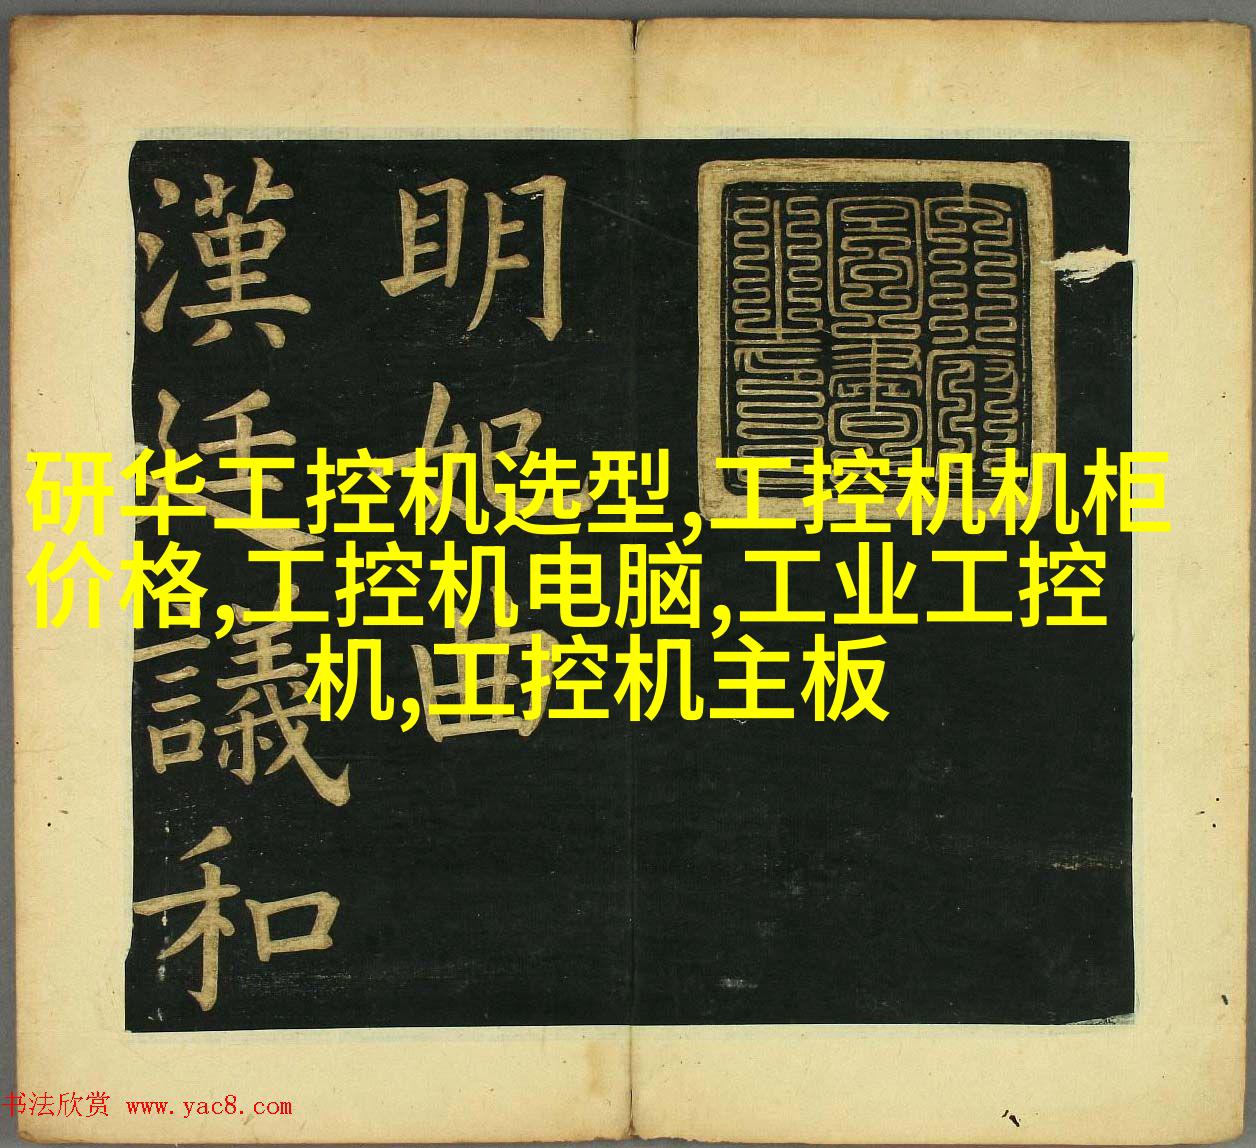 明妃曲
漢廷議和
研华工控机选型,工控机机柜
价格,工控机电脑,工业工控
机,工控机主板
书法欣赏 www.yac8.com